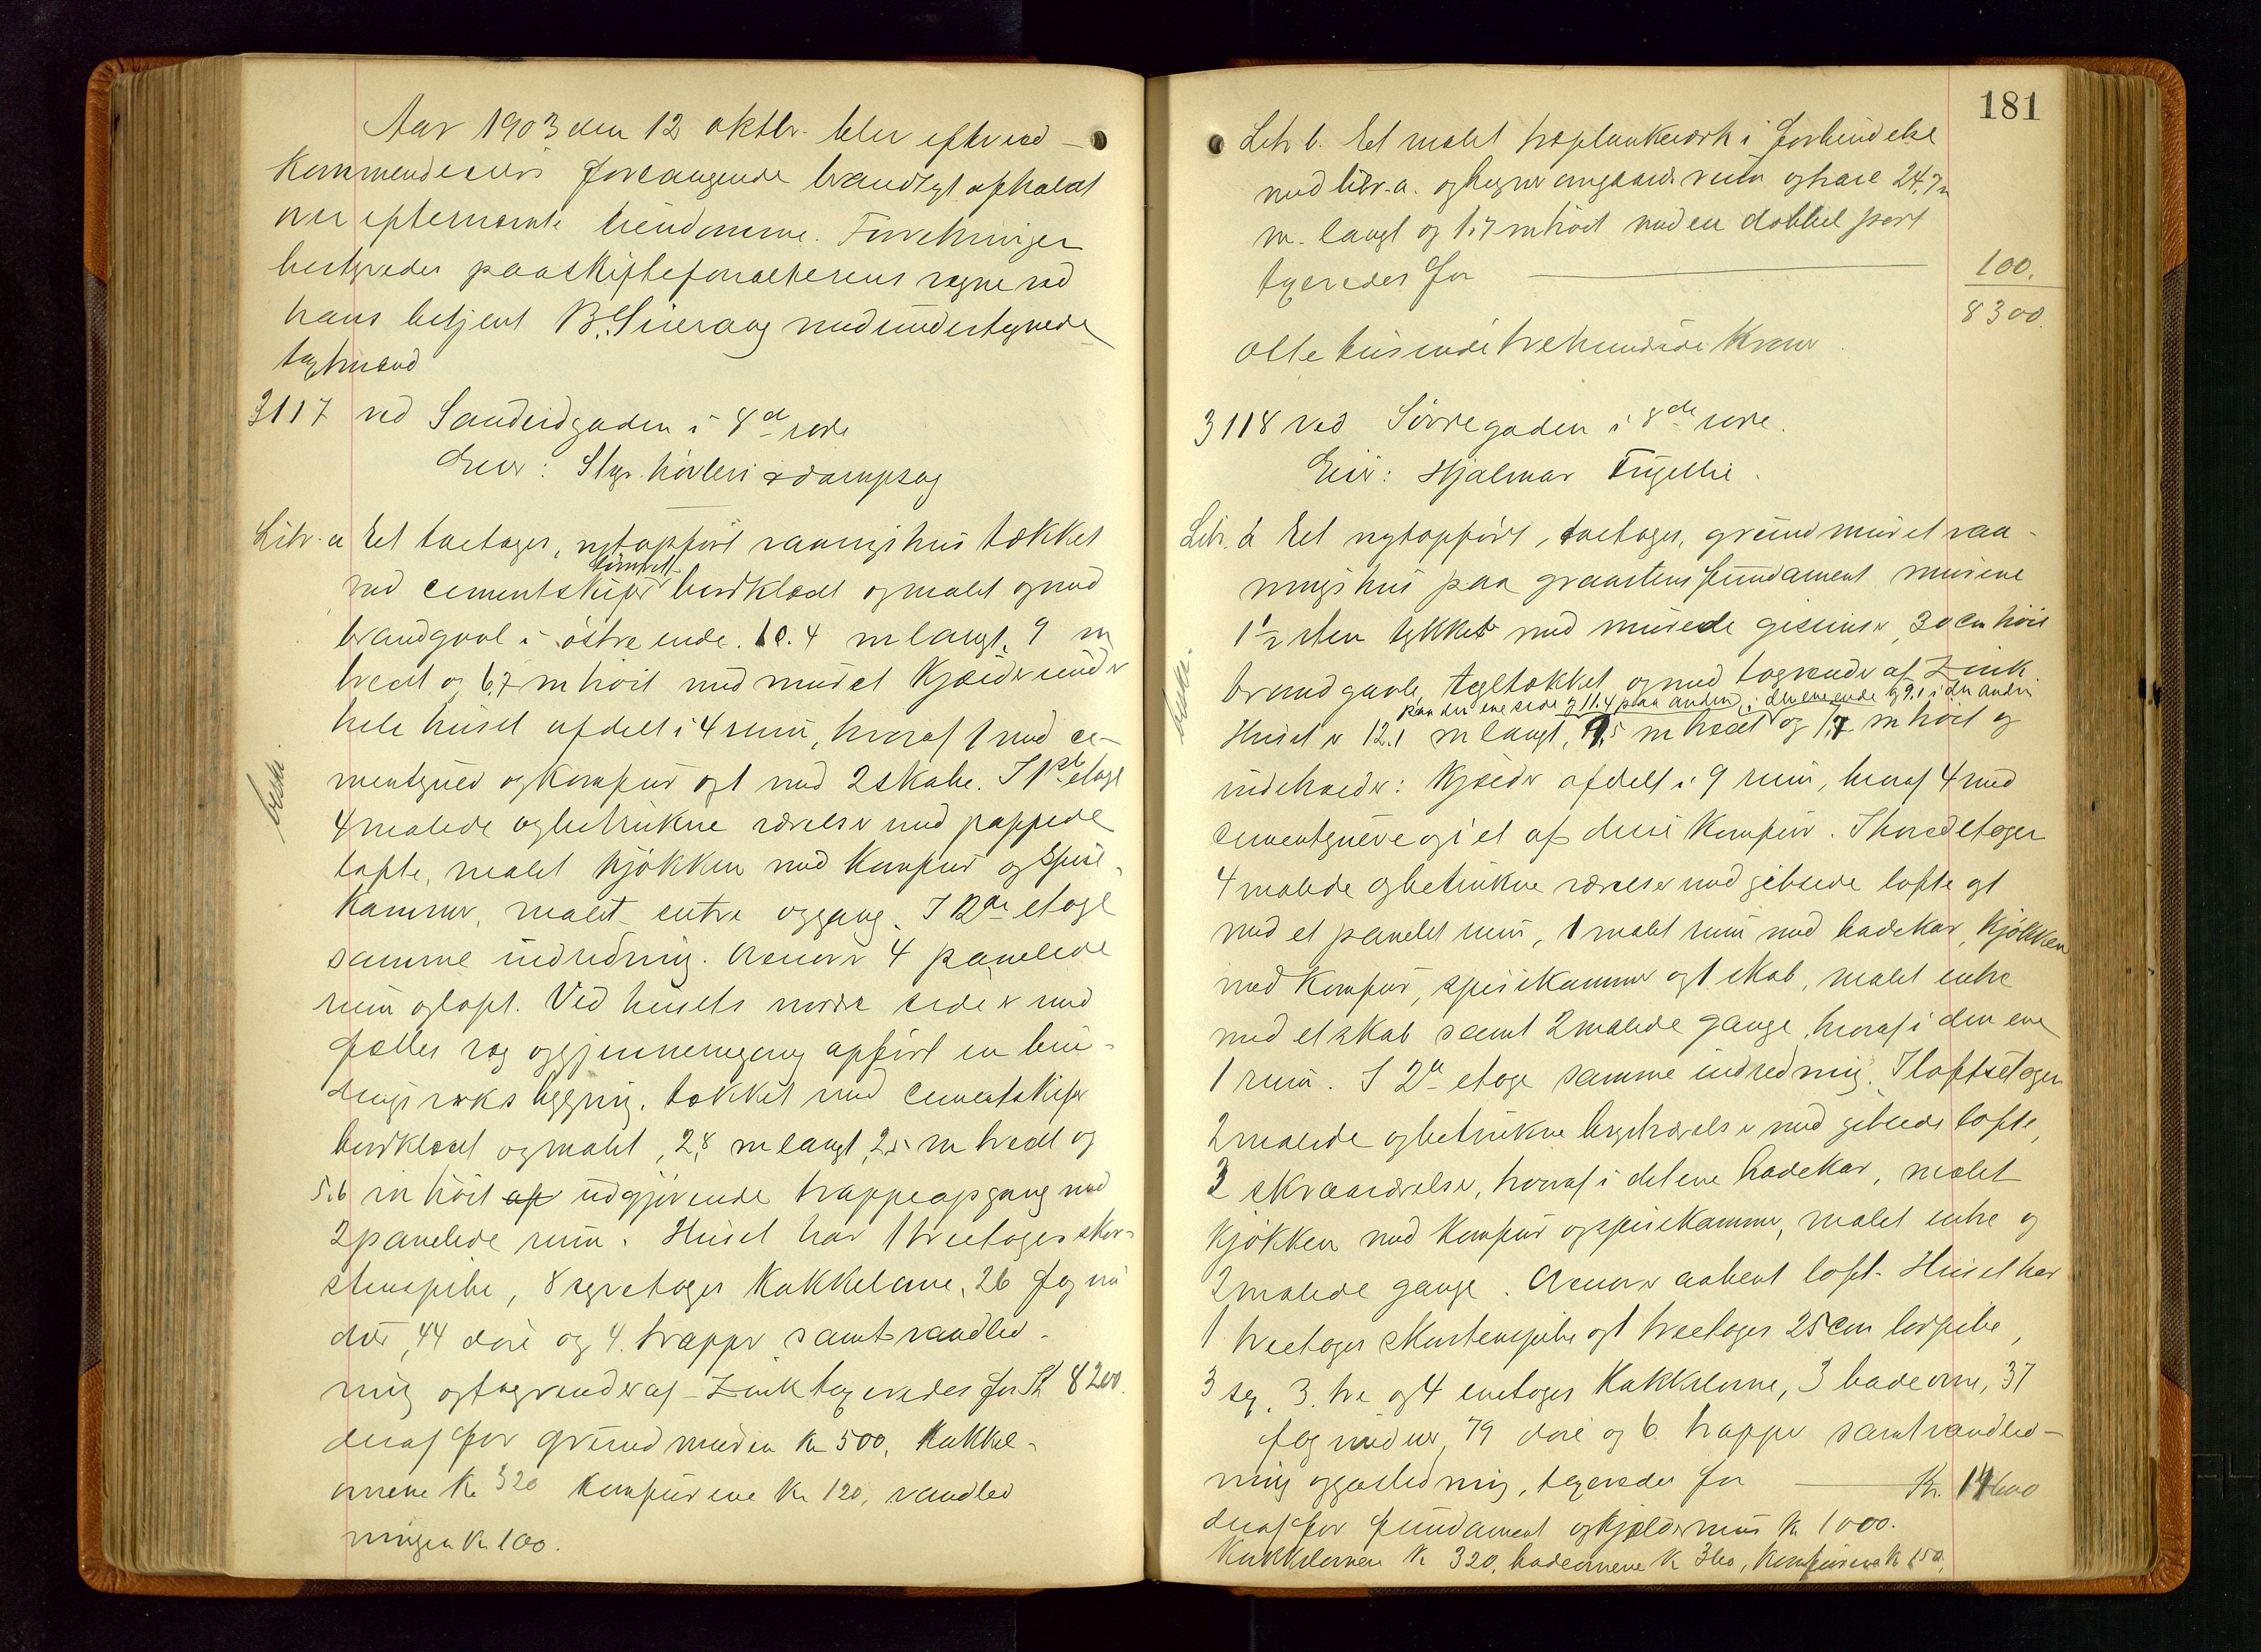 Aar 1903 den 12 oktbr. blev efter ved-
kommendes foreangende brandtagt afholdt
over efternævnte eiendomme. Forretningen
bestyredes paa skifteforvalterens vegne ved
hans betjent B. Sieverang med undertegnede
tagtmænd
3117 ved Sandeidgaden i 8d rode
Eier: Stgr. høvleri & dampsag
Litr. a Et toetages, nyt opført vaaningshus tækket
tømret
med cementskifer bordklædt og malet og med
brandgavl i østre ende. 10.4 m langt, 9 m
bredt og 6,7 m høit med muret kjælder under
hele huset afdelt i 4 rum, hvoraf 1 med ce-
mentgulv og komfur og 1 med 2 skabe. I 1ste etage
4 malede og betrukne værelser med pappede
lofte, malet kjøkken med komfur og spise-
kammer, malet entre og gang. I 2den etage
samme indredning. Ovenover 4 panelede
rum og loft. Ved husets nordre side er med
fælles væg og gjennemgang opført en bin-
dingsværks bygning, tækket med cementskifer
bordklædt og malet, 2,8 m langt, 2,5 m bredt og
5,6 m høit af udgjørende trappeopgang med
2 panelede rum. Huset har 1 treetages skor-
stenspibe, 8 syvetages kakkelovne, 26 fag vin
duer, 44 døre og 4 trapper samt vandled-
ning og tagrender af zink tagseredes for Kr 8200.
deraf for grundmuren Kr 500, kakkel-
ovnene Kr 320 komfurene Kr 120, vandled
ningen Kr 100.
beski.
181
Litr b. Et malet træplankeværk i forbindelse
med litr. a. og hegner omgaards rum og have 24,7
m. langt og 1,7 m høit med en dobbel port
taxeredes for 100.
8300.
Otte tusinde trehundrede Kroner
3118 ved Søvregaden i 8de rode.
Eier: Hjalmar Fugellie.
Litr. a Et nytopført, toetages, grundmuret vaa-
ningshus paa graastens fundament murene
1½ sten tykke med murede gesimser, 30 cm høie
brandgavle, tegltækket og med tagrender af zink
paa den ene side og 11.4 paa anden, i den ene ende og 9.1 i den anden
Huset er 12.1 m langt, 9,5 m bredt og 1,7 m høit og
indeholder: kjælder afdelt i 9 rum, hvoraf 4 med
cementgulve og i et af disse komfur. I hovedetagen
4 malede og betrukne værelser med gibsede lofte og 1
med et panelet rum, 1 malet rum med badekar, kjøkken
med komfur, spisekammer og 1 skab, malet entre
med et skab samt 2 malede gange, hvoraf i den ene
1 rum. I 2n etage samme indredning. I loftsetagen
2 malede og betrukne kvistværelser med gibsede lofte,
3 skraaværelser, hvoraf i det ene badekar, malet
kjøkken med komfur og spisekammer, malet entre og
2 malede gange. Ovenover aabent loft. Huset har
1 treetages skorstenspibe og 1 treetages 25 cm lovpibe,
3 sex, 3 tre og 4 enetages kakkelovne, 3 badeovne, 37
fag vinduer, 79 døre og 6 trapper samt vandled-
ning og gasledning, taxeredes for Kr. 14600
deraf for fundament og kjældermur Kr 1000.
kakkelovnen Kr 320, badeovnene Kr 360, komfurene Kr 150,
beski.